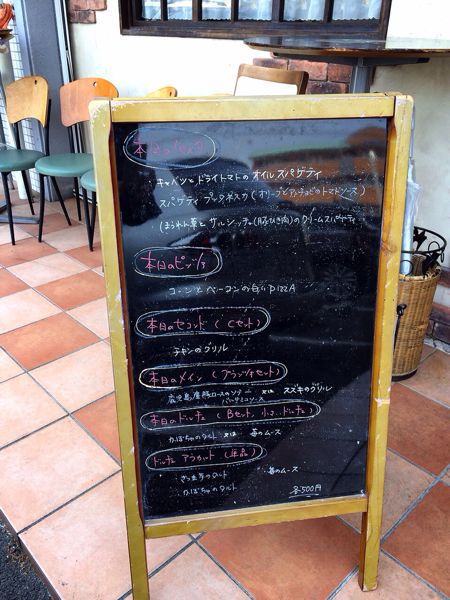 本日のパスタ
キャベツとドライトマトのオイルスパゲティ
スパゲティプッタネスカ(オリーブとアンチョビのトマトソース)
(ほうれん草とサルシッチャ(豚ひき肉)のクリームスパゲティ
本日のピッツァ
コーンとベーコンの白いPIZZA
本日のセコンド(Cセット)
チキンのグリル
本日のメイン(プランツォセット)
鹿児島産豚ロースのソテー 又は スズキのグリル
バルサミコソース
本日のドルチェ(Bセット,小さなドルチェ)
かぼちゃのタルト 又は 苺のムース
ドルチェ アラカルト(単品)
さつま芋のタルト 苺のムース
かぼちゃのタルト
各500円